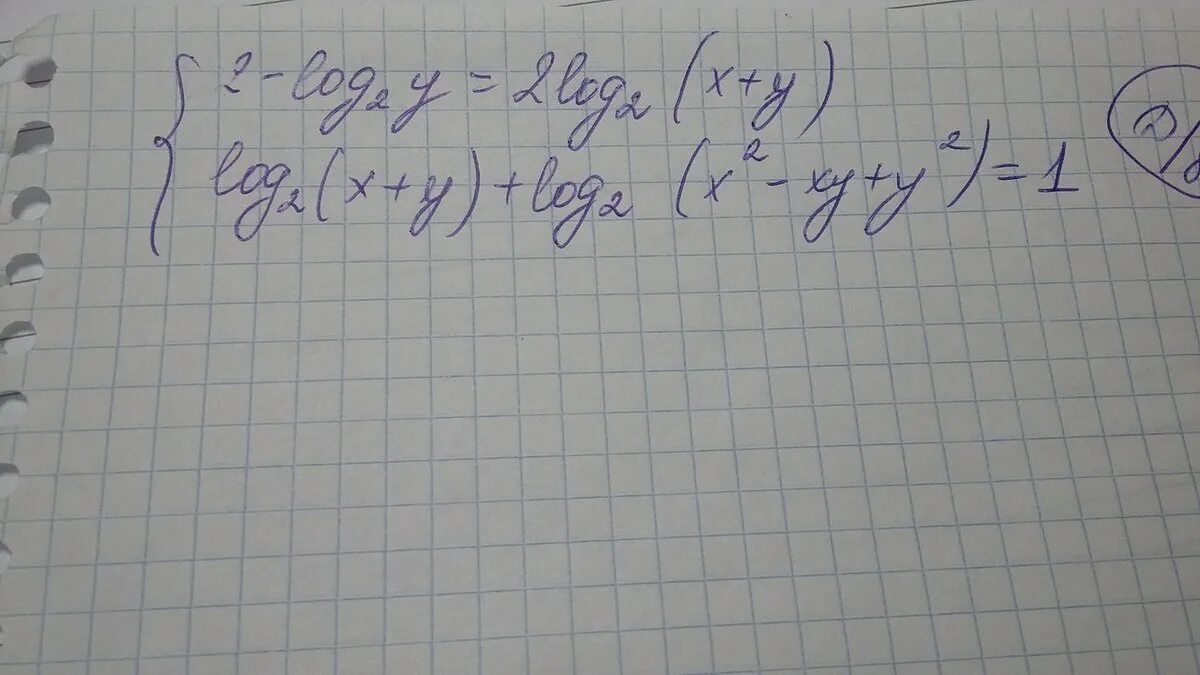 2 - log₂ y = 2log₂ (x+y)
log₂(x+y) + log₂ (x² - xy + y²) = 1